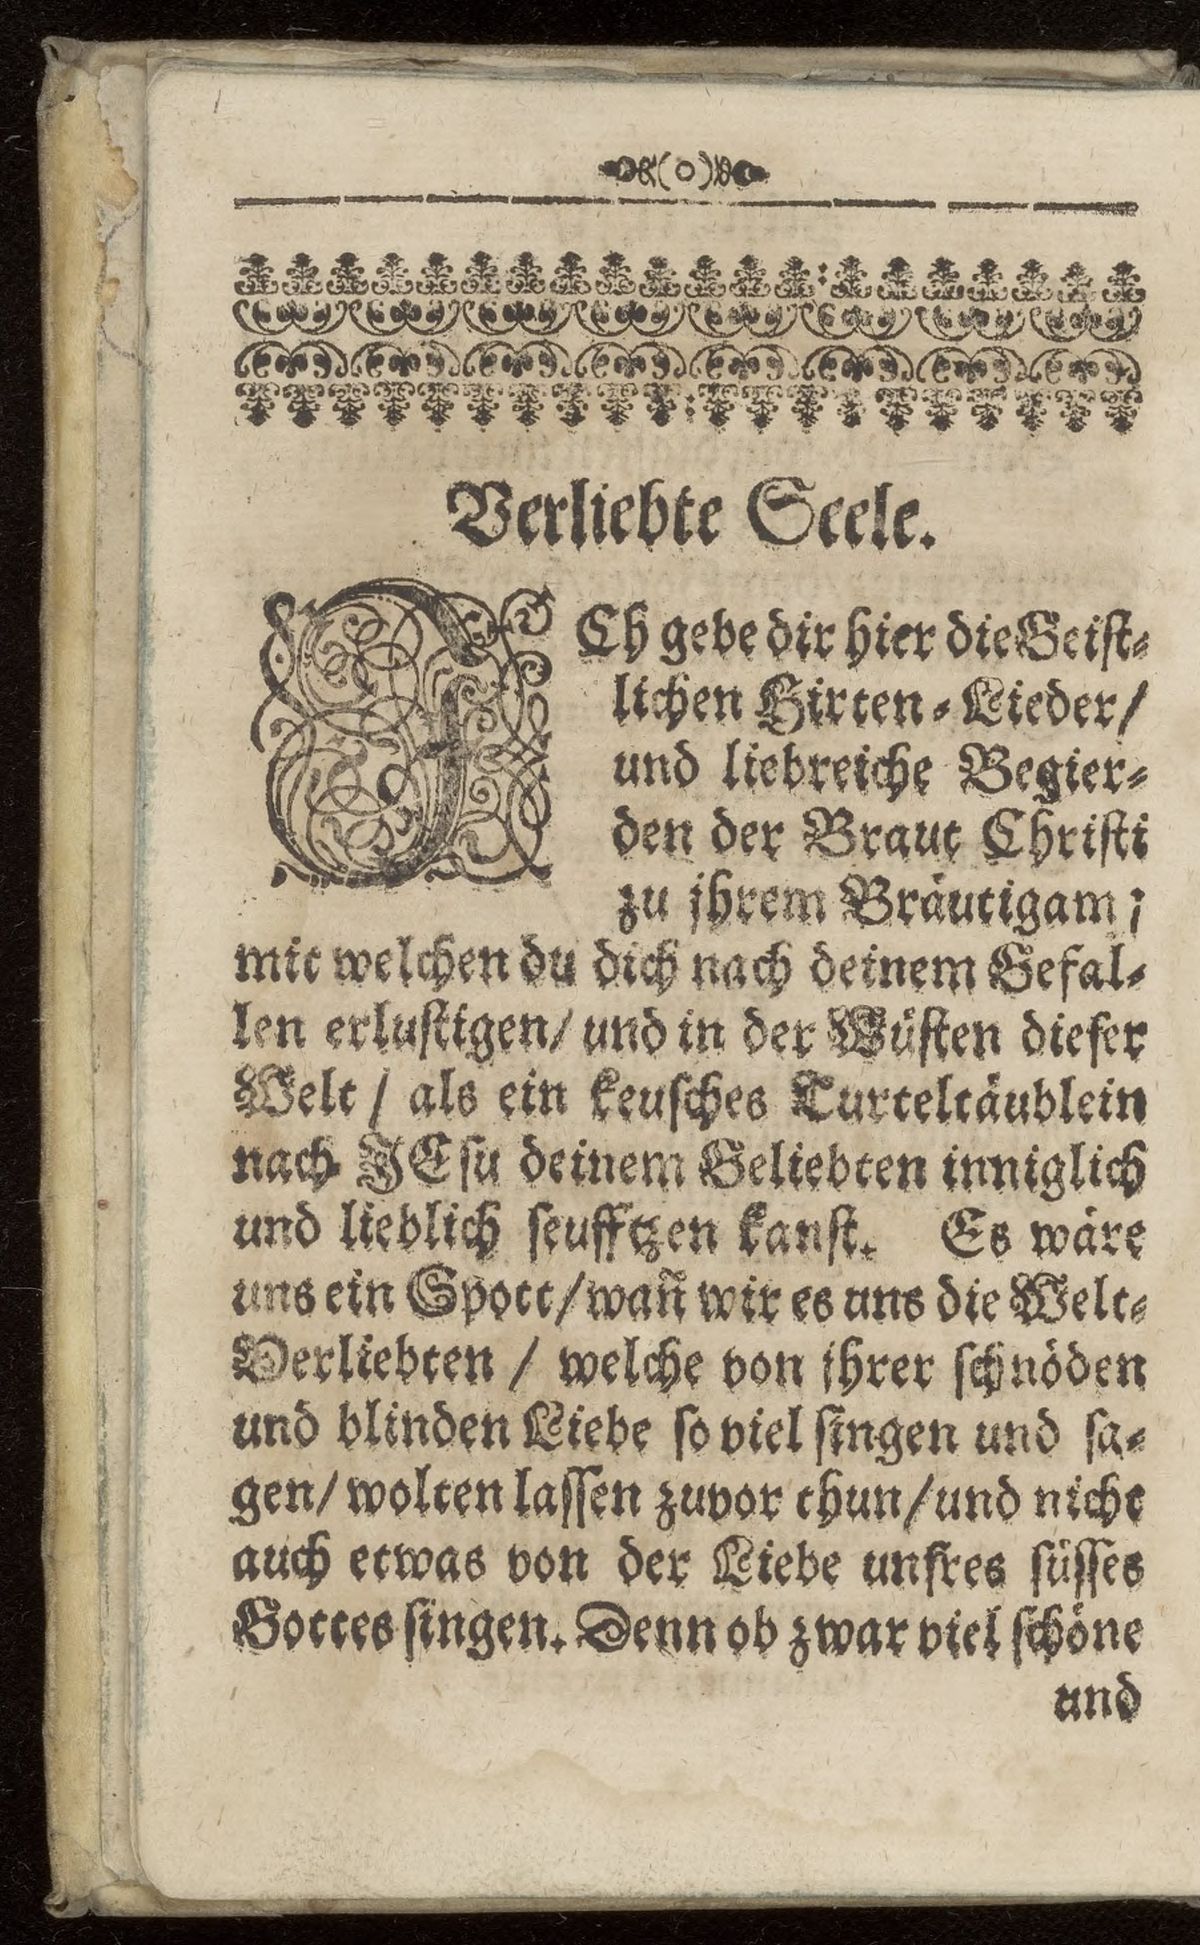 Verliebte Seele.
ICh gebe dir hier die Geist-
lichen Hirten-Lieder/
und liebreiche Begier-
den der Braut Christi
zu jhrem Bräutigam;
mit welchen du dich nach deinem Gefal-
len erlustigen/ und in der Wüsten dieser
Welt / als ein keusches Turteltäublein
nach JEsu deinem Geliebten inniglich
und lieblich seufftzen kanst. Es wäre
uns ein Spott/wañ wir es uns die Welt-
Verliebten / welche von jhrer schnöden
und blinden Liebe so viel singen und sa-
gen/ wolten lassen zuvor thun/und nicht
auch etwas von der Liebe unsres süsses
Gottes singen. Denn ob zwar viel schöne
und